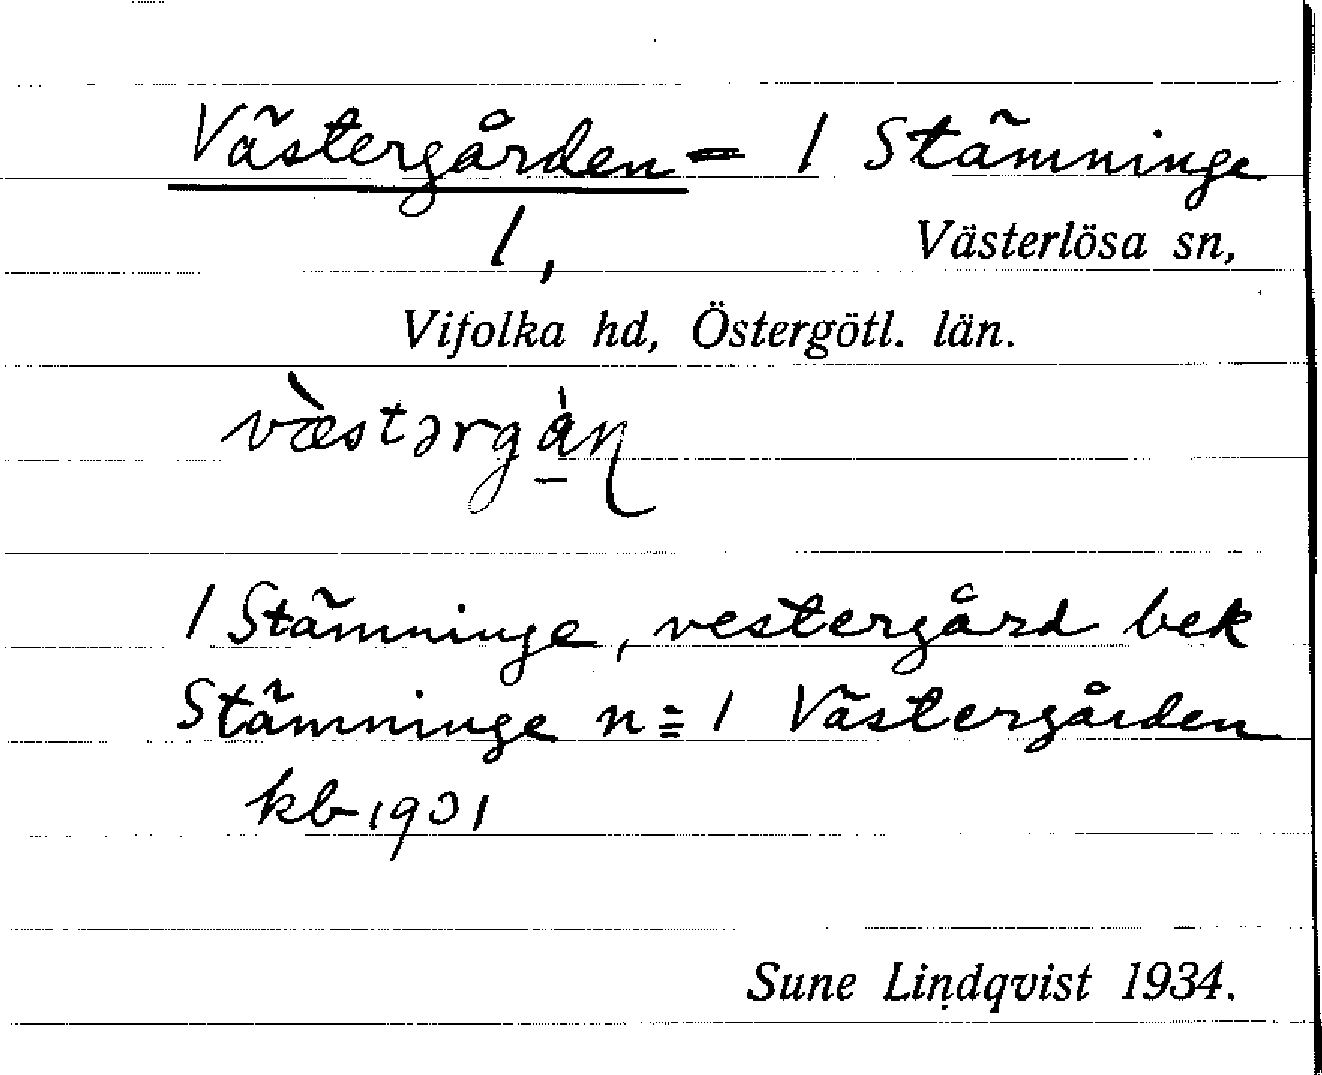 Västergården = 1 Stämninge
1, Västerlösa sn,
Vifolka hd, Östergötl. län.
væ̀stərgà̱ɳ
1 Stämninge, vestergård bek
Stämninge n:= 1 Västergården
kb 1901
Sune Lindqvist 1934.